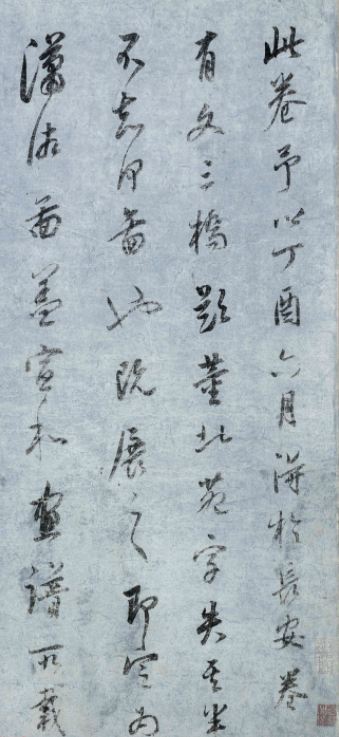 此卷予以丁酉六月得於長安卷
有文三橋題董北苑字失其半
不知何圖也既展之即定為
瀟湘圖蓋宣和畫譜所載